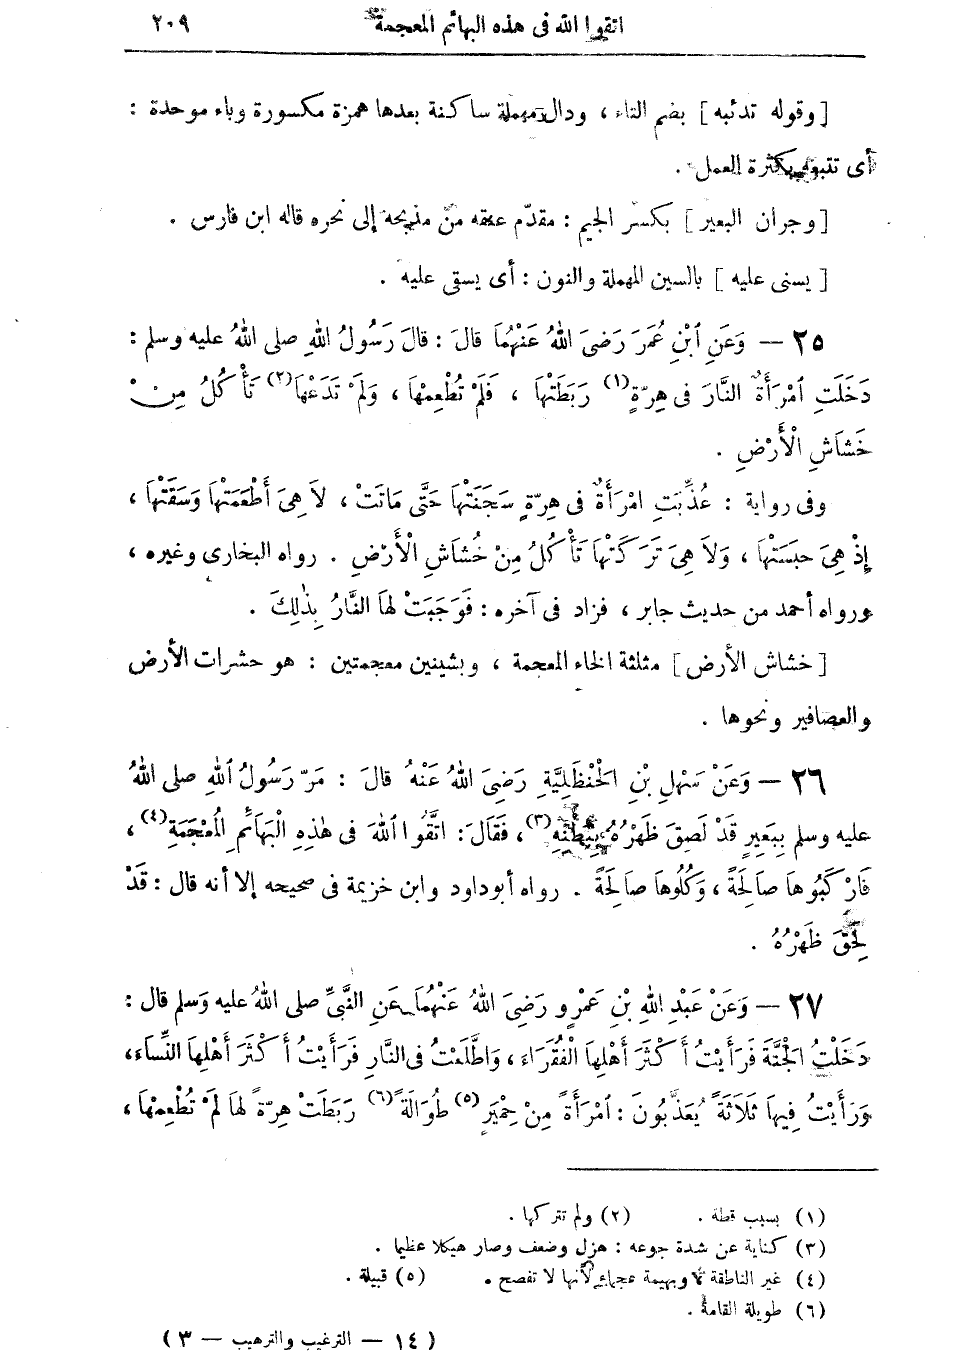 اتقوا الله فى هذه البهائم المعجمة ٢٠٩
[وقوله تدئبه] بضم التاء ، ودال مهملة ساكنة بعدها همزة مكسورة وباء موحدة :
أى تتعبه بكثرة العمل .
[وجران البعير] بكسر الجيم : مقدّم عنقه من مذبحه إلى نحره قاله ابن فارس .
[يسنى عليه] بالسين المهملة والنون : أى يسقى عليه .
٢٥ — وَعَنِ ٱبْنِ عُمَرَ رَضِىَ اللهُ عَنْهُمَا قالَ : قالَ رَسُولُ اللهِ صلى اللهُ عليه وسلم :
دَخَلَتِ ٱمْرَأَةٌ النَّارَ فى هِرّةٍ (١) رَبَطَتْهَا ، فَلَمْ تُطْعِمْهَا ، وَلَمْ تَدَعْهَا (٢) تَأْكُلُ مِنْ
خَشَاشِ الْأَرْضِ .
وفى رواية : عُذِّبَتِ امْرَأَةٌ فى هِرّةٍ سَجَنَتْهَا حَتَّى مَاتَتْ ، لاَ هِىَ أَطْعَمَتْهَا وَسَقَتْهَا ،
إِذْ هِىَ حبَسَتْهَا ، وَلاَ هِىَ تَرَكَتْهَا تَأْكُلُ مِنْ خُشَاشِ الْأَرْضِ . رواه البخارى وغيره ،
ورواه أحمد من حديث جابر ، فزاد فى آخره : فَوَجَبَتْ لهَا النَّارُ بِذٰلِكَ .
[خشاش الأرض] مثلثة الخاء المعجمة ، وبشينين معجمتين : هو حشرات الأرض
والعصافير ونحوها .
٢٦ — وَعَنْ سَهْلِ بْنِ الْحَنْظَلِيَّةِ رَضِىَ اللهُ عَنْهُ قالَ : مَرّ رَسُولُ اللهِ صلى اللهُ
عليه وسلم بِبَعِيرٍ قَدْ لَصِقَ ظَهْرُهُ بِبَطْنِهِ (٣) ، فَقَالَ : اتَّقُوا اللهَ فى هٰذِهِ الْبَهَائمِ الْمُعْجَمَةِ (٤) ،
فَارْكَبُوهَا صَالِحَةً ، وَكُلُوهَا صَالِحَةً . رواه أبوداود وابن خزيمة فى صحيحه إلا أنه قال : قَدْ
لَحِقَ ظَهْرُهُ .
٢٧ — وَعَنْ عَبْدِ اللهِ بْنِ عَمْرٍو رَضِىَ اللهُ عَنْهُمَا عَنِ النَّبِىِّ صلى اللهُ عليه وَسلم قال :
دَخَلْتُ الْجَنَّةَ فَرَأَيْتُ أَكْثَرَ أَهْلِهَا الْفُقَرَاءَ ، وَاطَّلَعْتُ فى النَّارِ فَرَأَيْتُ أَكْثَرَ أَهْلِهَا النِّسَاءَ ،
وَرَأَيْتُ فِيهَا ثَلاَثَةً يُعَذَّبُونَ : ٱمْرَأَةً مِنْ حِمْيَرَ (٥) طُوَالَةً (٦) رَبَطَتْ هِرّةً لهَا لَمْ تُطْعِمْهَا ،
(١) بسبب قطة . (٢) ولم تتركها .
(٣) كناية عن شدة جوعه : هزل وضعف وصار هيكلا عظيما .
(٤) غير الناطقة وبهيمة عجماء لأنها لا تفصح . (٥) قبيلة .
(٦) طويلة القامة .
(١٤ — الترغيب والترهيب — ٣)